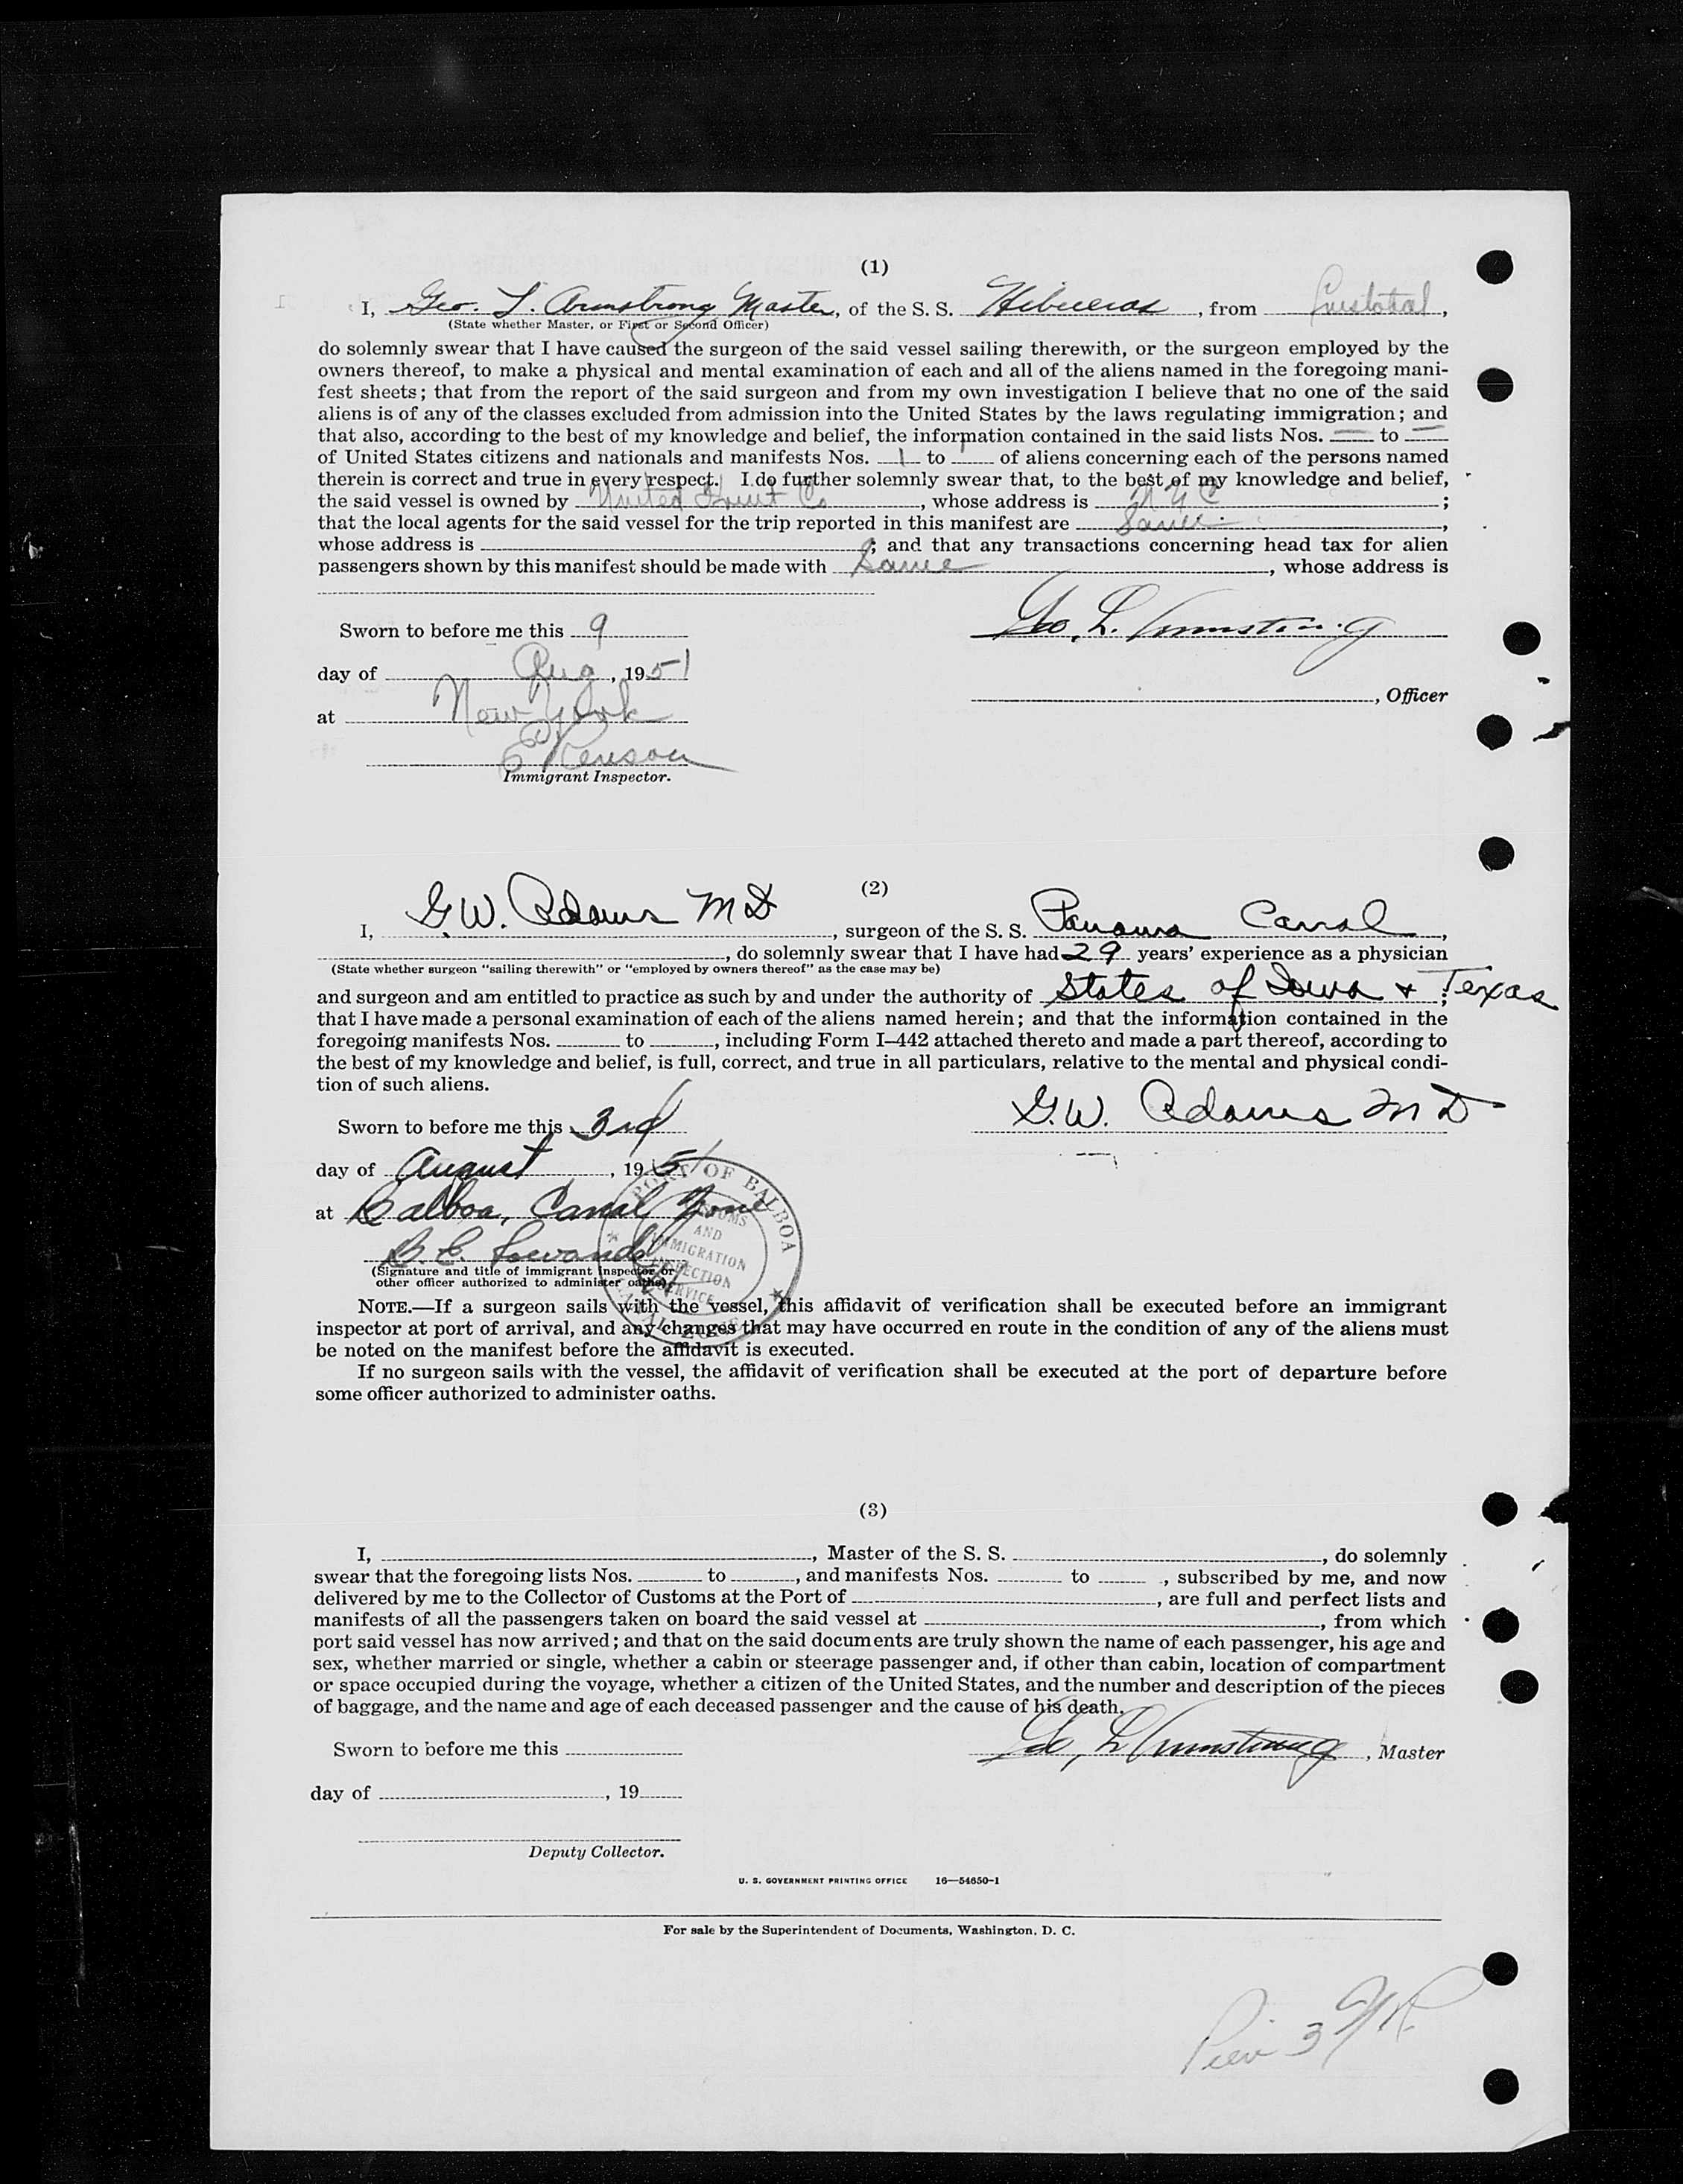 (1)
I, Geo. L. Armstrong Master, of the S. S. Hibueras, from Cristobal,
(State whether Master, or First or Second Officer)
do solemnly swear that I have caused the surgeon of the said vessel sailing therewith, or the surgeon employed by the
owners thereof, to make a physical and mental examination of each and all of the aliens named in the foregoing mani-
fest sheets; that from the report of the said surgeon and from my own investigation I believe that no one of the said
aliens is of any of the classes excluded from admission into the United States by the laws regulating immigration; and
that also, according to the best of my knowledge and belief, the information contained in the said lists Nos. — to —
of United States citizens and nationals and manifests Nos. 1 to 1 of aliens concerning each of the persons named
therein is correct and true in every respect. I do further solemnly swear that, to the best of my knowledge and belief,
the said vessel is owned by United Fruit Co, whose address is N Y C;
that the local agents for the said vessel for the trip reported in this manifest are Same,
whose address is ; and that any transactions concerning head tax for alien
passengers shown by this manifest should be made with Same, whose address is
Geo. L. Armstrong
Sworn to before me this 9
day of Aug, 1951
, Officer
at New York
Immigrant Inspector.
(2)
I, G.W. Adams MD, surgeon of the S. S. Panama Canal,
, do solemnly swear that I have had 29 years' experience as a physician
(State whether surgeon "sailing therewith" or "employed by owners thereof" as the case may be)
and surgeon and am entitled to practice as such by and under the authority of States of Iowa + Texas;
that I have made a personal examination of each of the aliens named herein; and that the information contained in the
foregoing manifests Nos. to , including Form I–442 attached thereto and made a part thereof, according to
the best of my knowledge and belief, is full, correct, and true in all particulars, relative to the mental and physical condi-
tion of such aliens.
G.W. Adams MD
Sworn to before me this 3rd
day of August, 1951
at Balboa, Canal Zone
PORT OF BALBOA
CUSTOMS
AND
IMMIGRATION
INSPECTION
SERVICE
CANAL ZONE
(Signature and title of immigrant inspector or
other officer authorized to administer oaths)
NOTE.—If a surgeon sails with the vessel, this affidavit of verification shall be executed before an immigrant
inspector at port of arrival, and any changes that may have occurred en route in the condition of any of the aliens must
be noted on the manifest before the affidavit is executed.
If no surgeon sails with the vessel, the affidavit of verification shall be executed at the port of departure before
some officer authorized to administer oaths.
(3)
I, , Master of the S. S. , do solemnly
swear that the foregoing lists Nos. to , and manifests Nos. to , subscribed by me, and now
delivered by me to the Collector of Customs at the Port of , are full and perfect lists and
manifests of all the passengers taken on board the said vessel at , from which
port said vessel has now arrived; and that on the said documents are truly shown the name of each passenger, his age and
sex, whether married or single, whether a cabin or steerage passenger and, if other than cabin, location of compartment
or space occupied during the voyage, whether a citizen of the United States, and the number and description of the pieces
of baggage, and the name and age of each deceased passenger and the cause of his death.
Geo. L. Armstrong, Master
Sworn to before me this
day of , 19
Deputy Collector.
U. S. GOVERNMENT PRINTING OFFICE 16—54650-1
For sale by the Superintendent of Documents, Washington, D. C.
Pier 3 NR